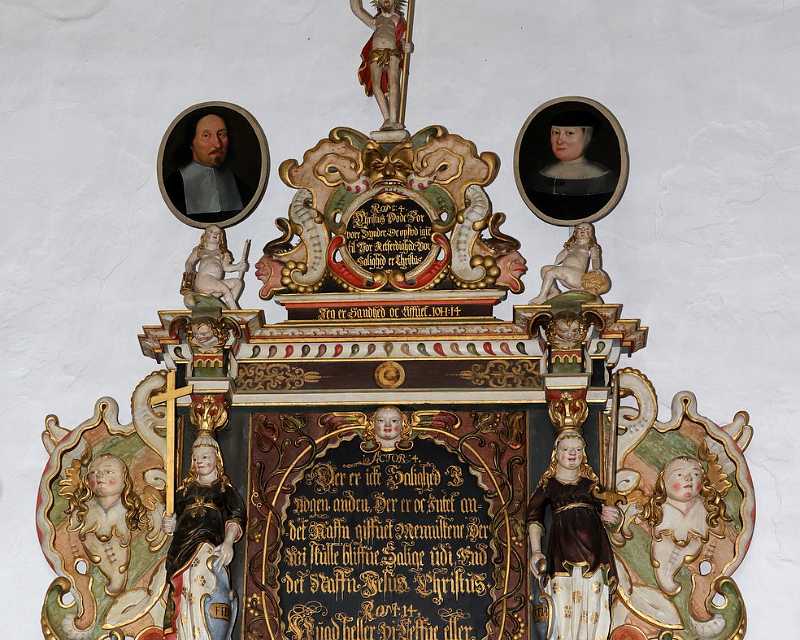 Rom: 4.
Christus Døde For
vore Synder Oc opstod igie
til Vor Retferdighed Vor
Salighed er Christus
Jeg er Sandhed oc Liffuet. IOH: 14
ACTOR: 4.
Der er ickt Salighed I
Nogen anden, Der er oc Intet an-
det Naffn giffuit Menniskene Der
Wi skulle bliffue Salige udi End
det Naffn Jesus Christus
Rom: 14.
Huad heller Vi Leffue eller
FID